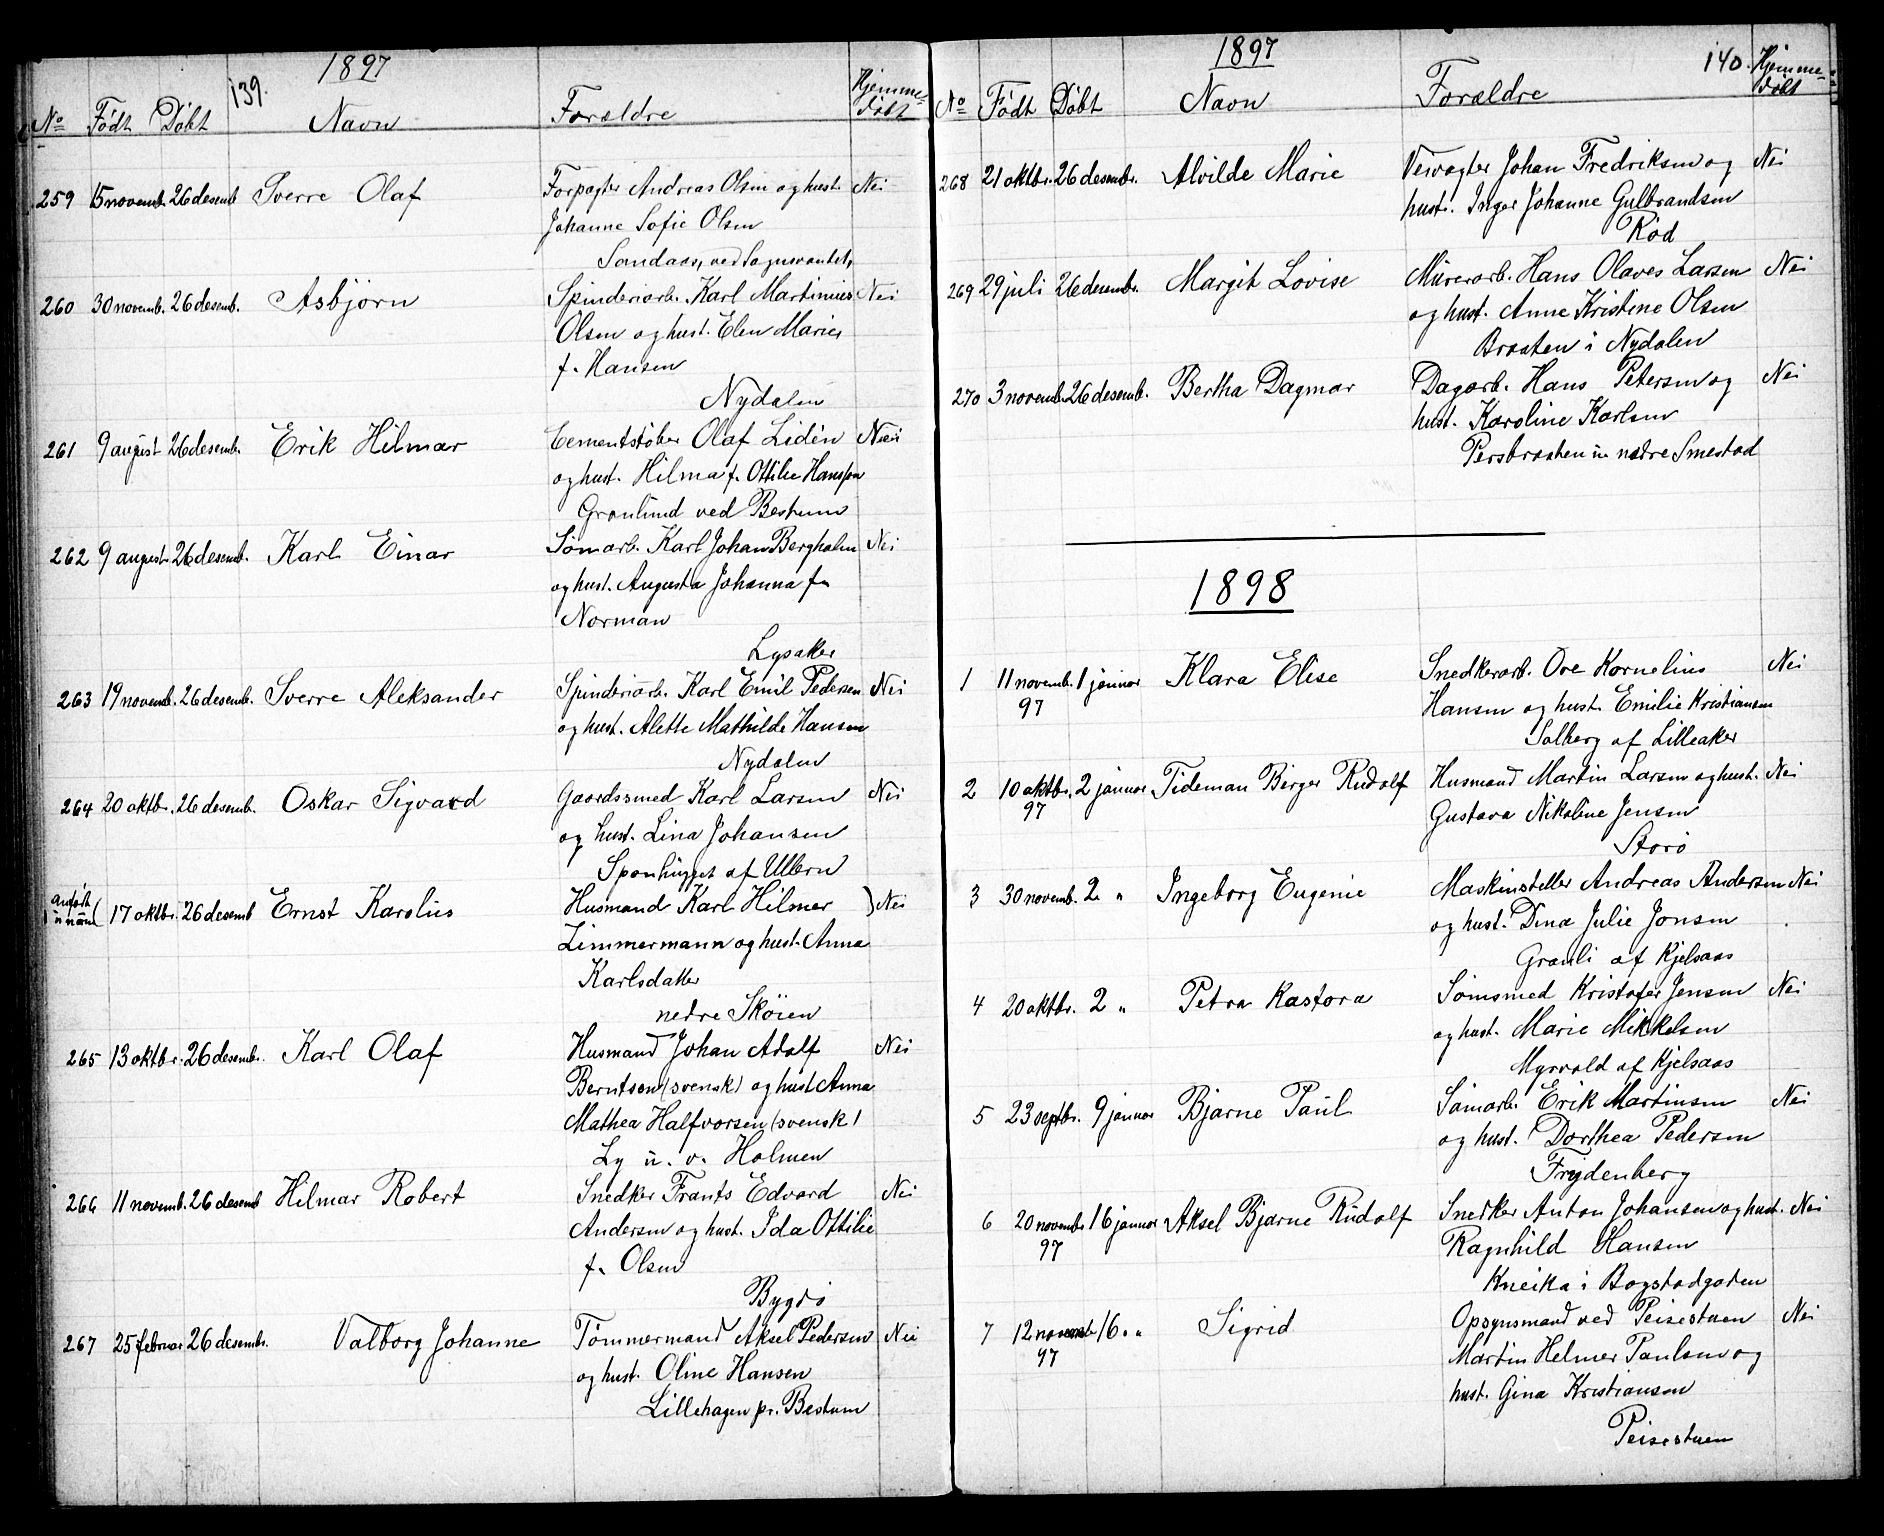 139.
1897
No Født Døbt Navn Forældre Hjemme-
døbt
259 15 novemb. 26 desemb Sverre Olaf Forpagter Andreas Olsen og hust. Nei
Johanne Sofie Olsen
Sandaas, ved Sognsvandet,
260 30 novemb. 26 desemb. Asbjørn Spinderiarb. Karl Martinius Nei
Olsen og hust. Elen Marie,
f. Hansen
Nydalen
261 9 august 26 desemb. Erik Hilmar Cementstøber Olaf Lidén Nei
og hust. Hilma f. Ottilie Hansson
Granlund ved Bestum
262 9 august 26 desemb. Karl Einar Sømarb. Karl Johan Bergholm Nei
og hust. Augusta Johanna f.
Norman
Lysaker
263 19 novemb. 26 desemb. Sverre Aleksander Spinderiarb. Karl Emil Pedersen Nei
og hust. Alette Mathilde Hansen
Nydalen
264 20 oktbr. 26 desemb. Oskar Sigvard Gaardssmed Karl Larsen Nei
og hust. Lina Johansen
Sponhugget af Ullern
anført 17 oktbr. 26 desemb Ernst Karolius Husmand Karl Hilmer ) Nei
Zimmermann og hust. Anna
Karlsdatter
nedre Skøien
265 13 oktbr. 26 desembr. Karl Olaf Husmand Johan Adolf Nei
Berntsen (svensk) og hust Anna
Mathea Halfvorsen (svensk)
Ly u. v. Holmen
266 11 novemb. 26 desemb Hilmar Robert Snedker Frants Edvard Nei
Andersen og hust. Ida Ottilie
f. Olsen
Bygdø
267 25 februar 26 desembr. Valborg Johanne Tømmermand Aksel Pedersen Nei
og hust. Oline Hansen
Lillehagen pr. Bestum
1897
140.
No Født Døbt Navn Forældre Hjemme-
døbt
268 21 oktbr. 26 desembr. Alvilde Marie Veivogter Johan Fredriksen og Nei
hust. Inger Johanne Gulbrandsen
Rød
269 29 juli 26 desemb. Margit Lovise Murerarb. Hans Olaves Larsen Nei
og hust. Anne Kristine Olsen
Braaten i Nydalen
270 3 novemb. 26 desemb. Bertha Dagmar Dagarb. Hans Petersen og Nei
hust. Karoline Karlsen
Persbraaten u. nedre Smestad
1898
1 11 novemb. 1 januar Klara Elise Snedkerarb. Ove Kornelius Nei
97 Hansen og hust. Emilie Kristiansen
Solberg af Lilleaker
2 10 oktbr. 2 januar Tideman Birger Rudolf Husmand Martin Larsen og hust. Nei
97 Gustava Nikoline Jensen
Storø
3 30 novemb. 2 " Ingeborg Eugenie Maskinsteller Andreas Andersen Nei
og hust. Dina Julie Jonsen
Granli af Kjelsaas
4 20 oktbr. 2 " Petra Kastora Sømsmed Kristofer Jensen Nei
og hust. Marie Mikkelsen
Myrvold af Kjelsaas
5 23 septbr. 9 januar Bjarne Paul Sømarb. Erik Martinsen Nei
og hust. Dorthea Pedersen
Frydenberg
6 20 novembr 16 januar Aksel Bjarne Rudolf Snedker Anton Johansen og hust. Nei
97 Ragnhild Hansen
Kneika i Bogstadgaden
7 12 novemb 16. " Sigrid Opsynsmand ved Peisestuen Nei
97 Martin Helmer Paulsen og
hust. Gina Kristiansen
Peisestuen